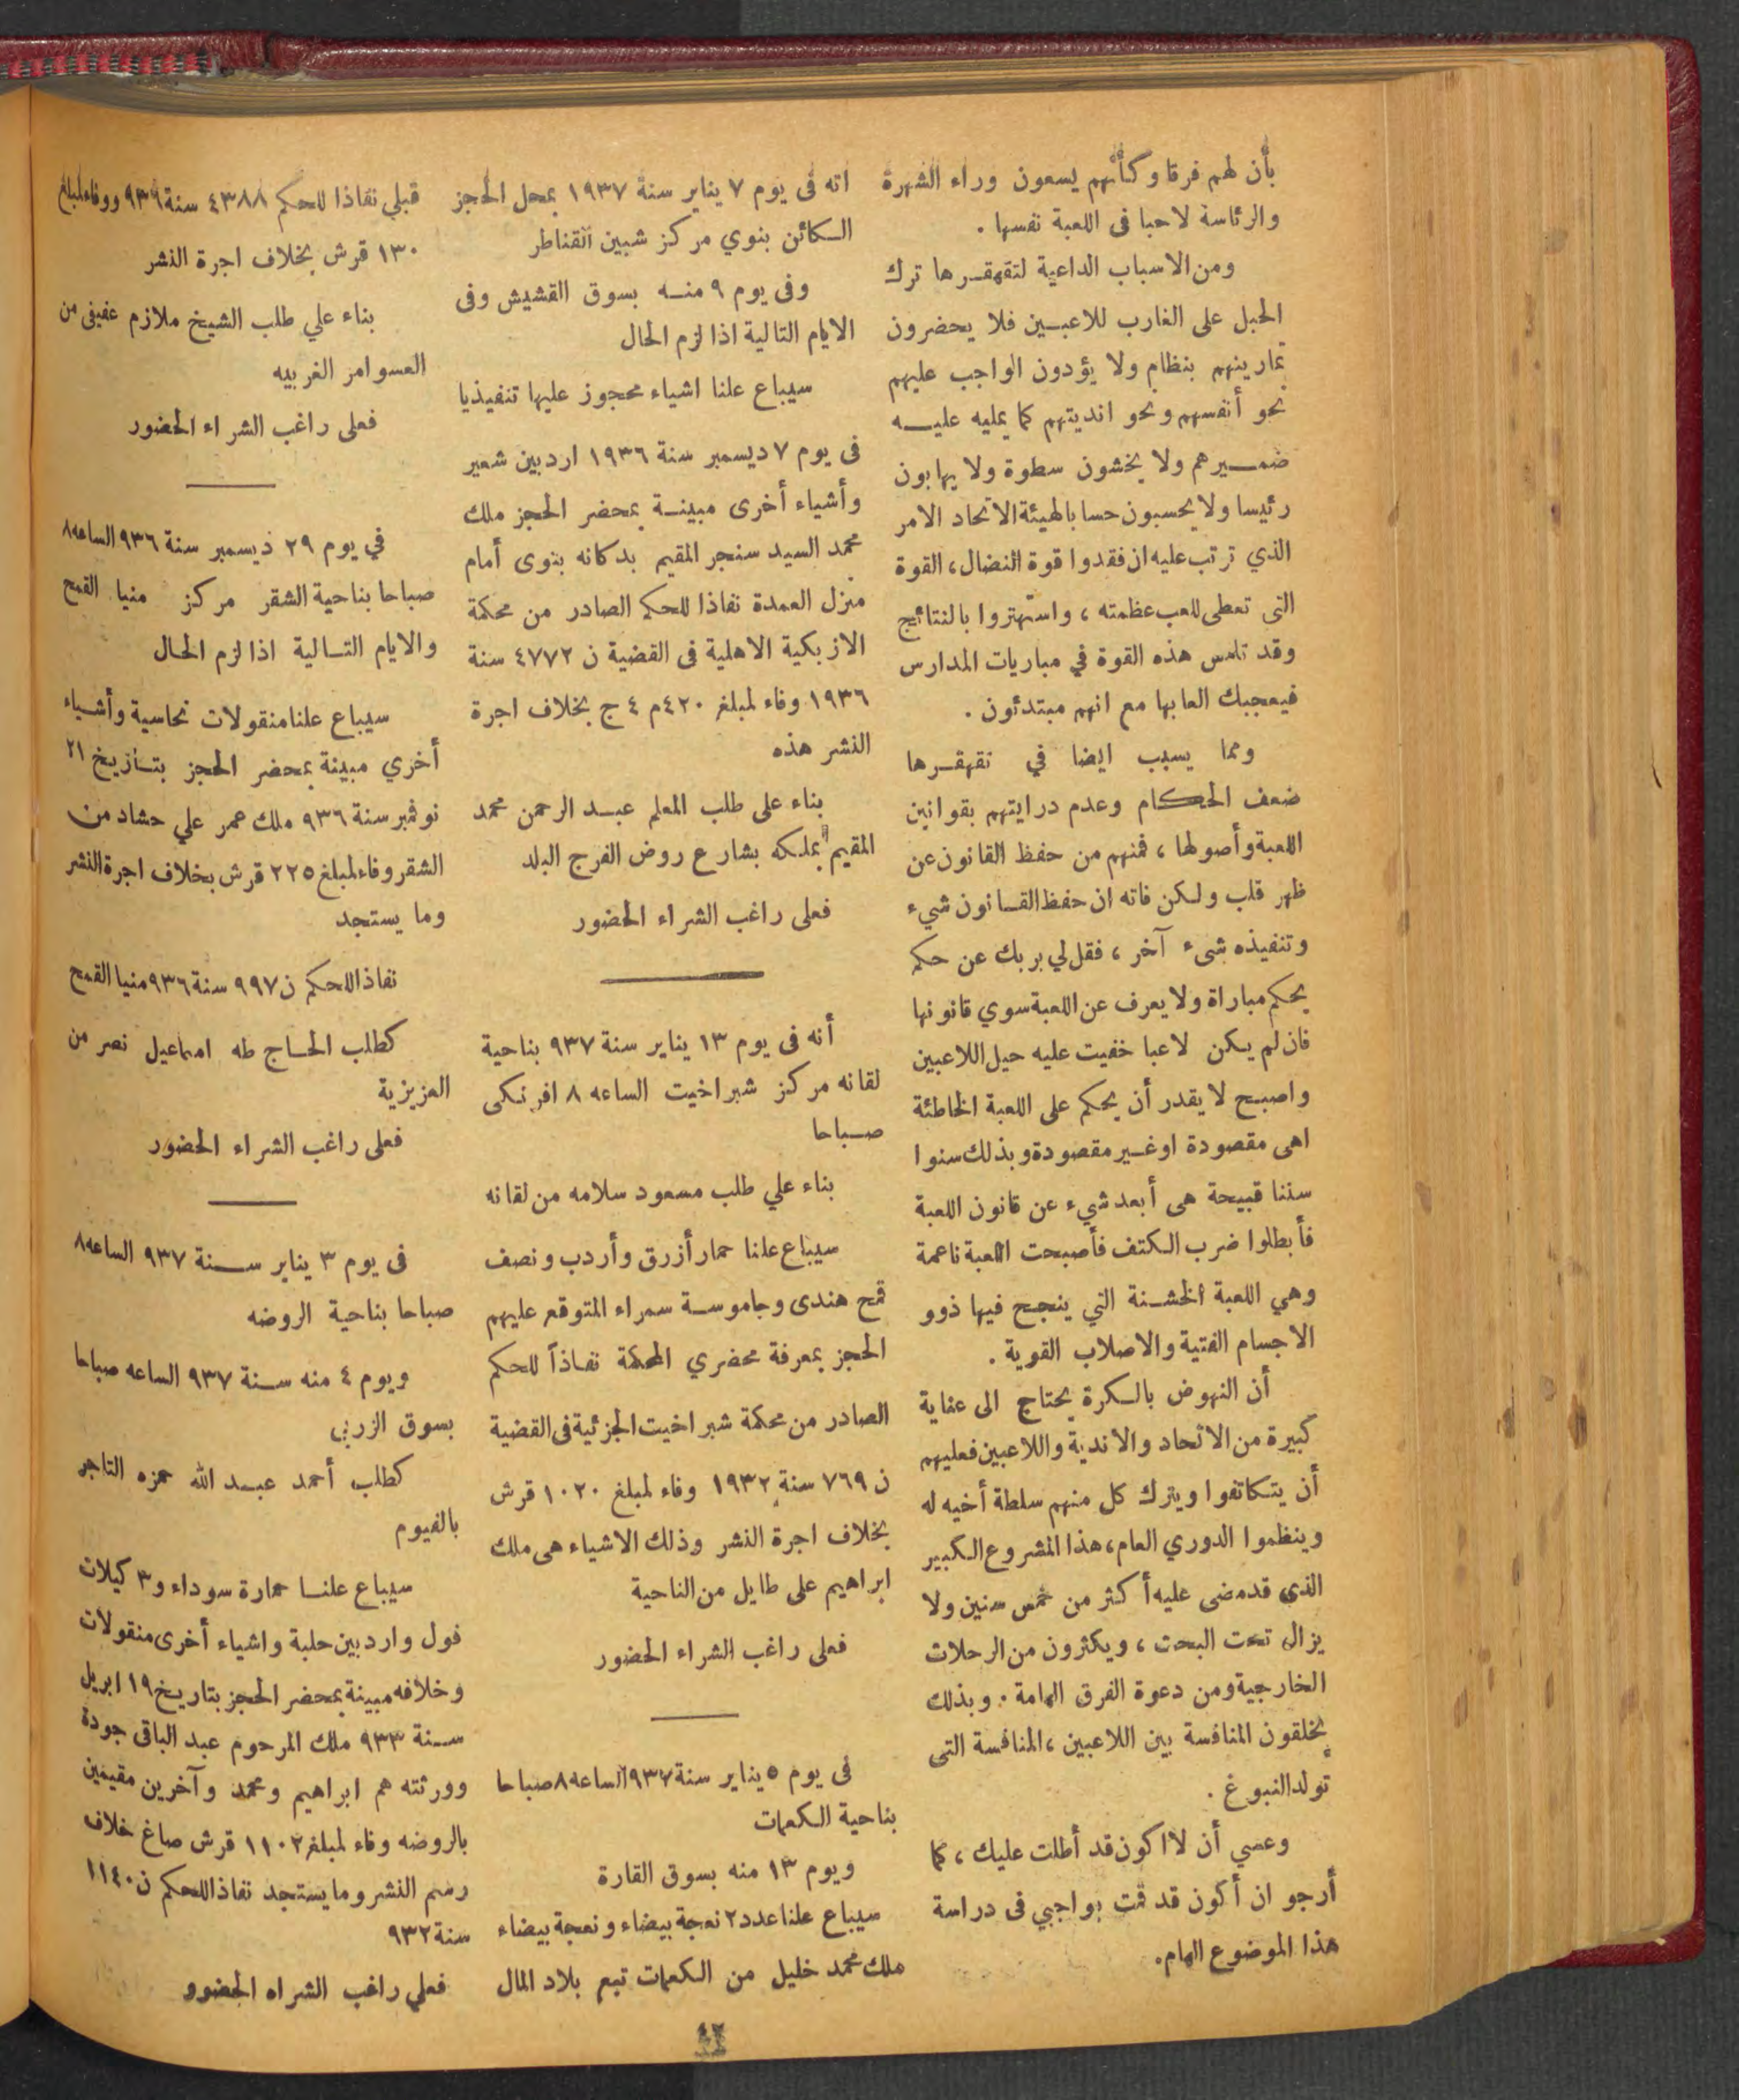 بأن لهم فرقا وكأنهم يسعون وراء الشهرة
والرئاسة لا حبا فى اللعبة نفسها .
ومن الاسباب الداعية لتقهقرها ترك
الحبل على الغارب للاعبين فلا يحضرون
تمارينهم بنظام ولا يؤدون الواجب عليهم
نحو أنفسهم ونحو انديتهم كما يمليه عليه
ضميرهم ولا يخشون سطوة ولا يهابون
رئيسا ولا يحسبون حسابا لهيئة الاتحاد الامر
الذي ترتب عليه ان فقدوا قوة النضال، القوة
التى تعطى للعب عظمته ، واستهتروا بالنتائج
وقد تلمس هذه القوة في مباريات المدارس
فيعجبك العابها مع انهم مبتدئون .
ومما يسبب ايضا في تقهقرها
ضعف الحكام وعدم درايتهم بقوانين
اللعبة وأصولها ، فمنهم من حفظ القانون عن
ظهر قلب ولكن فاته ان حفظ القانون شيء
وتنفيذه شىء آخر ، فقل لي بربك عن حكم
يحكم مباراة ولا يعرف عن اللعبة سوي قانونها
فان لم يكن لاعبا خفيت عليه حيل اللاعبين
واصبح لا يقدر أن يحكم على اللعبة الخاطئة
اهى مقصودة او غير مقصودة وبذلك سنوا
سننا قبيحة هى أبعد شيء عن قانون اللعبة
فأبطلوا ضرب الكتف فأصبحت اللعبة ناعمة
وهي اللعبة الخشنة التي ينجح فيها ذوو
الاجسام الفتية والاصلاب القوية .
أن النهوض بالكرة يحتاج الى عناية
كبيرة من الاتحاد والاندية واللاعبين فعليهم
أن يتكاتفوا ويترك كل منهم سلطة أخيه له
وينظموا الدوري العام، هذا المشروع الكبير
الذي قد مضى عليه أكثر من خمس سنين ولا
يزال تحت البحت ، ويكثرون من الرحلات
الخارجية ومن دعوة الفرق الهامة . وبذلك
يخلقون المنافسة بين اللاعبين ، المنافسة التى
تولد النبوغ .
وعسي أن لا اكون قد أطلت عليك ، كما
أرجو ان أكون قد قمت بواجبي فى دراسة
هذا الموضوع الهام.
انه فى يوم ٧ يناير سنة ١٩٣٧ بمحل الحجز
الكائن بنوي مركز شبين القناطر
وفى يوم ٩ منه بسوق القشيش وفى
الايام التالية اذا لزم الحال
سيباع علنا اشياء محجوز عليها تنفيذيا
فى يوم ٧ ديسمبر سنة ١٩٣٦ اردبين شعير
وأشياء أخرى مبينة بمحضر الحجز ملك
محمد السيد سنجر المقيم بدكانه بنوى أمام
منزل العمدة نفاذا للحكم الصادر من محكمة
الازبكية الاهلية فى القضية ن ٤٧٧٢ سنة
١٩٣٦ وفاء لمبلغ ٤٢٠م ٤ ج بخلاف اجرة
النشر هذه
بناء على طلب المعلم عبد الرحمن محمد
المقيم بملكه بشارع روض الفرج البلد
فعلى راغب الشراء الحضور
أنه فى يوم ١٣ يناير سنة ٩٣٧ بناحية
لقانه مركز شبراخيت الساعه ٨ افرنكى
صباحا
بناء علي طلب مسعود سلامه من لقانه
سيباع علنا حمار أزرق وأردب ونصف
قمح هندى وجاموسة سمراء المتوقع عليهم
الحجز بمعرفة محضري المحكمة نفاذاً للحكم
الصادر من محكمة شبراخيت الجزئية فى القضية
ن ٧٦٩ سنة ١٩٣٢ وفاء لمبلغ ١٠٢٠ قرش
بخلاف اجرة النشر وذلك الاشياء هى ملك
ابراهيم على طايل من الناحية
فعلى راغب الشراء الحضور
فى يوم ٥ يناير سنة ٩٣٧ الساعه ٨ صباحا
بناحية الكعمات
ويوم ١٣ منه بسوق القارة
سيباع علنا عدد ٢ نعجة بيضاء ونعجة بيضاء
ملك محمد خليل من الكعمات تبع بلاد المال
قبلي نفاذا للحكم ٤٣٨٨ سنة ٩٣٦ ووفاء لمبلغ
١٣٠ قرش بخلاف اجرة النشر
بناء علي طلب الشيخ ملازم عفيفى من
العسوامر الغربيه
فعلى راغب الشراء الحضور
في يوم ٢٩ ديسمبر سنة ٩٣٦ الساعه ٨
صباحا بناحية الشقر مركز منيا القمح
والايام التالية اذا لزم الحال
سيباع علنا منقولات نحاسية وأشياء
أخري مبينة بمحضر الحجز بتاريخ ٢١
نوفمبر سنة ٩٣٦ ملك عمر علي حشاد من
الشقر وفاء لمبلغ ٢٢٥ قرش بخلاف اجرة النشر
وما يستجد
نفاذا للحكم ن ٩٩٧ سنة ٩٣٦ منيا القمح
كطلب الحاج طه اسماعيل نصر من
العزيزية
فعلى راغب الشراء الحضور
فى يوم ٣ يناير سنة ٩٣٧ الساعه ٨
صباحا بناحية الروضه
ويوم ٤ منه سنة ٩٣٧ الساعه صباحا
بسوق الزربي
كطلب أحمد عبد الله حمزه التاجر
بالفيوم
سيباع علنا حمارة سوداء و٣ كيلات
فول واردبين حلبة واشياء أخرى منقولات
وخلافه مبينة بمحضر الحجز بتاريخ ١٩ ابريل
سنة ٩٣٣ ملك المرحوم عبد الباقى جودة
وورثته هم ابراهيم ومحمد وآخرين مقيمين
بالروضه وفاء لمبلغ ١١٠٢ قرش صاغ خلاف
رسم النشر وما يستجد نفاذا للحكم ن ١١٤٠
سنة ٩٣٢
فعلي راغب الشراه الحضوو